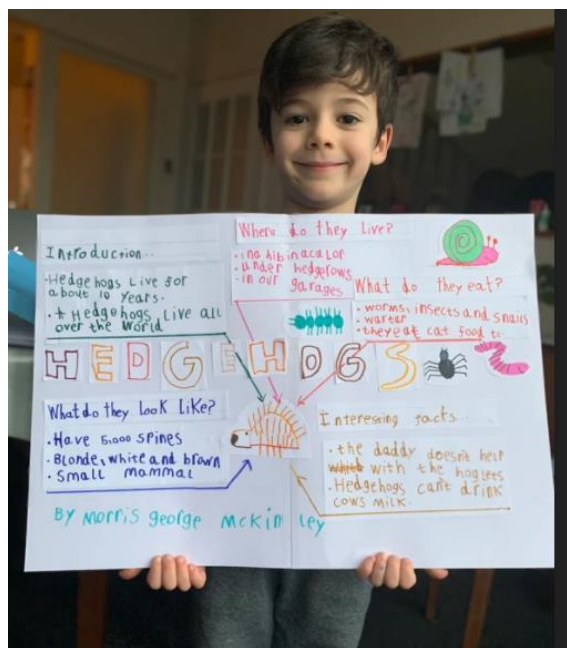 Introduction...
• Hedgehogs Live for
about 10 years.
• + Hedgehogs Live all
over the World
Where do they Live?
• in a hibinaculor
• under hedgerows
• in our garages
What do they eat?
• worms, insects and snails
• warter
• they eat cat food to
HEDGEHOGS
What do they look like?
• Have 5,000 spines
• Blonde, white and brown
• Small mammal
Interesting facts...
• the daddy doesn't help
with the hoglets
• Hedgehogs can't drink
cows milk.
By Morris george mckinley